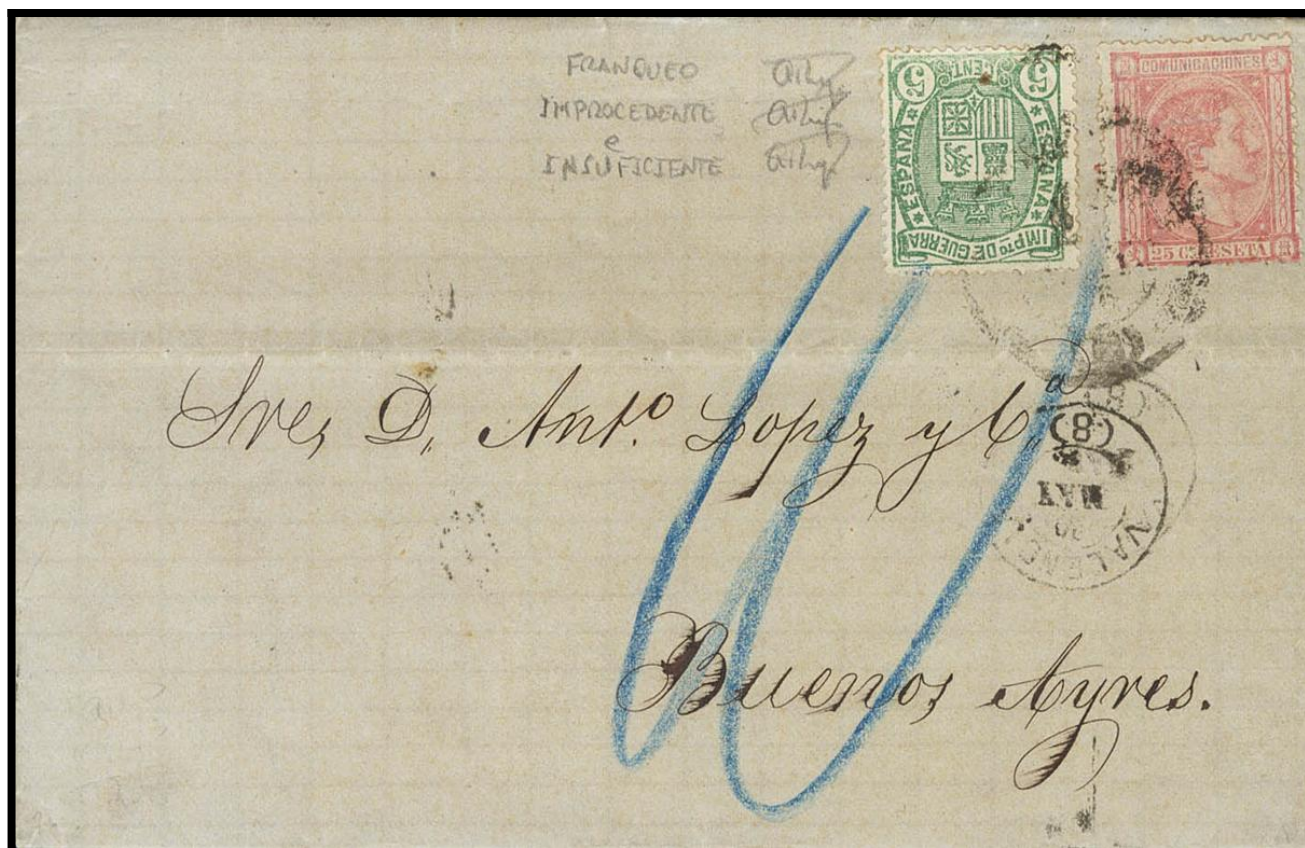 FRANQUEO
IMPROCEDENTE
e
INSUFICIENTE
5 CENTS 5
★ ESPAÑA ★
★ ESPAÑA ★
IMPTO DE GUERRA
COMUNICACIONES
25 CS PESETA
Sres D. Anto. Lopez y Ca
(8)
MAY
VALENC
10
Buenos Ayres.